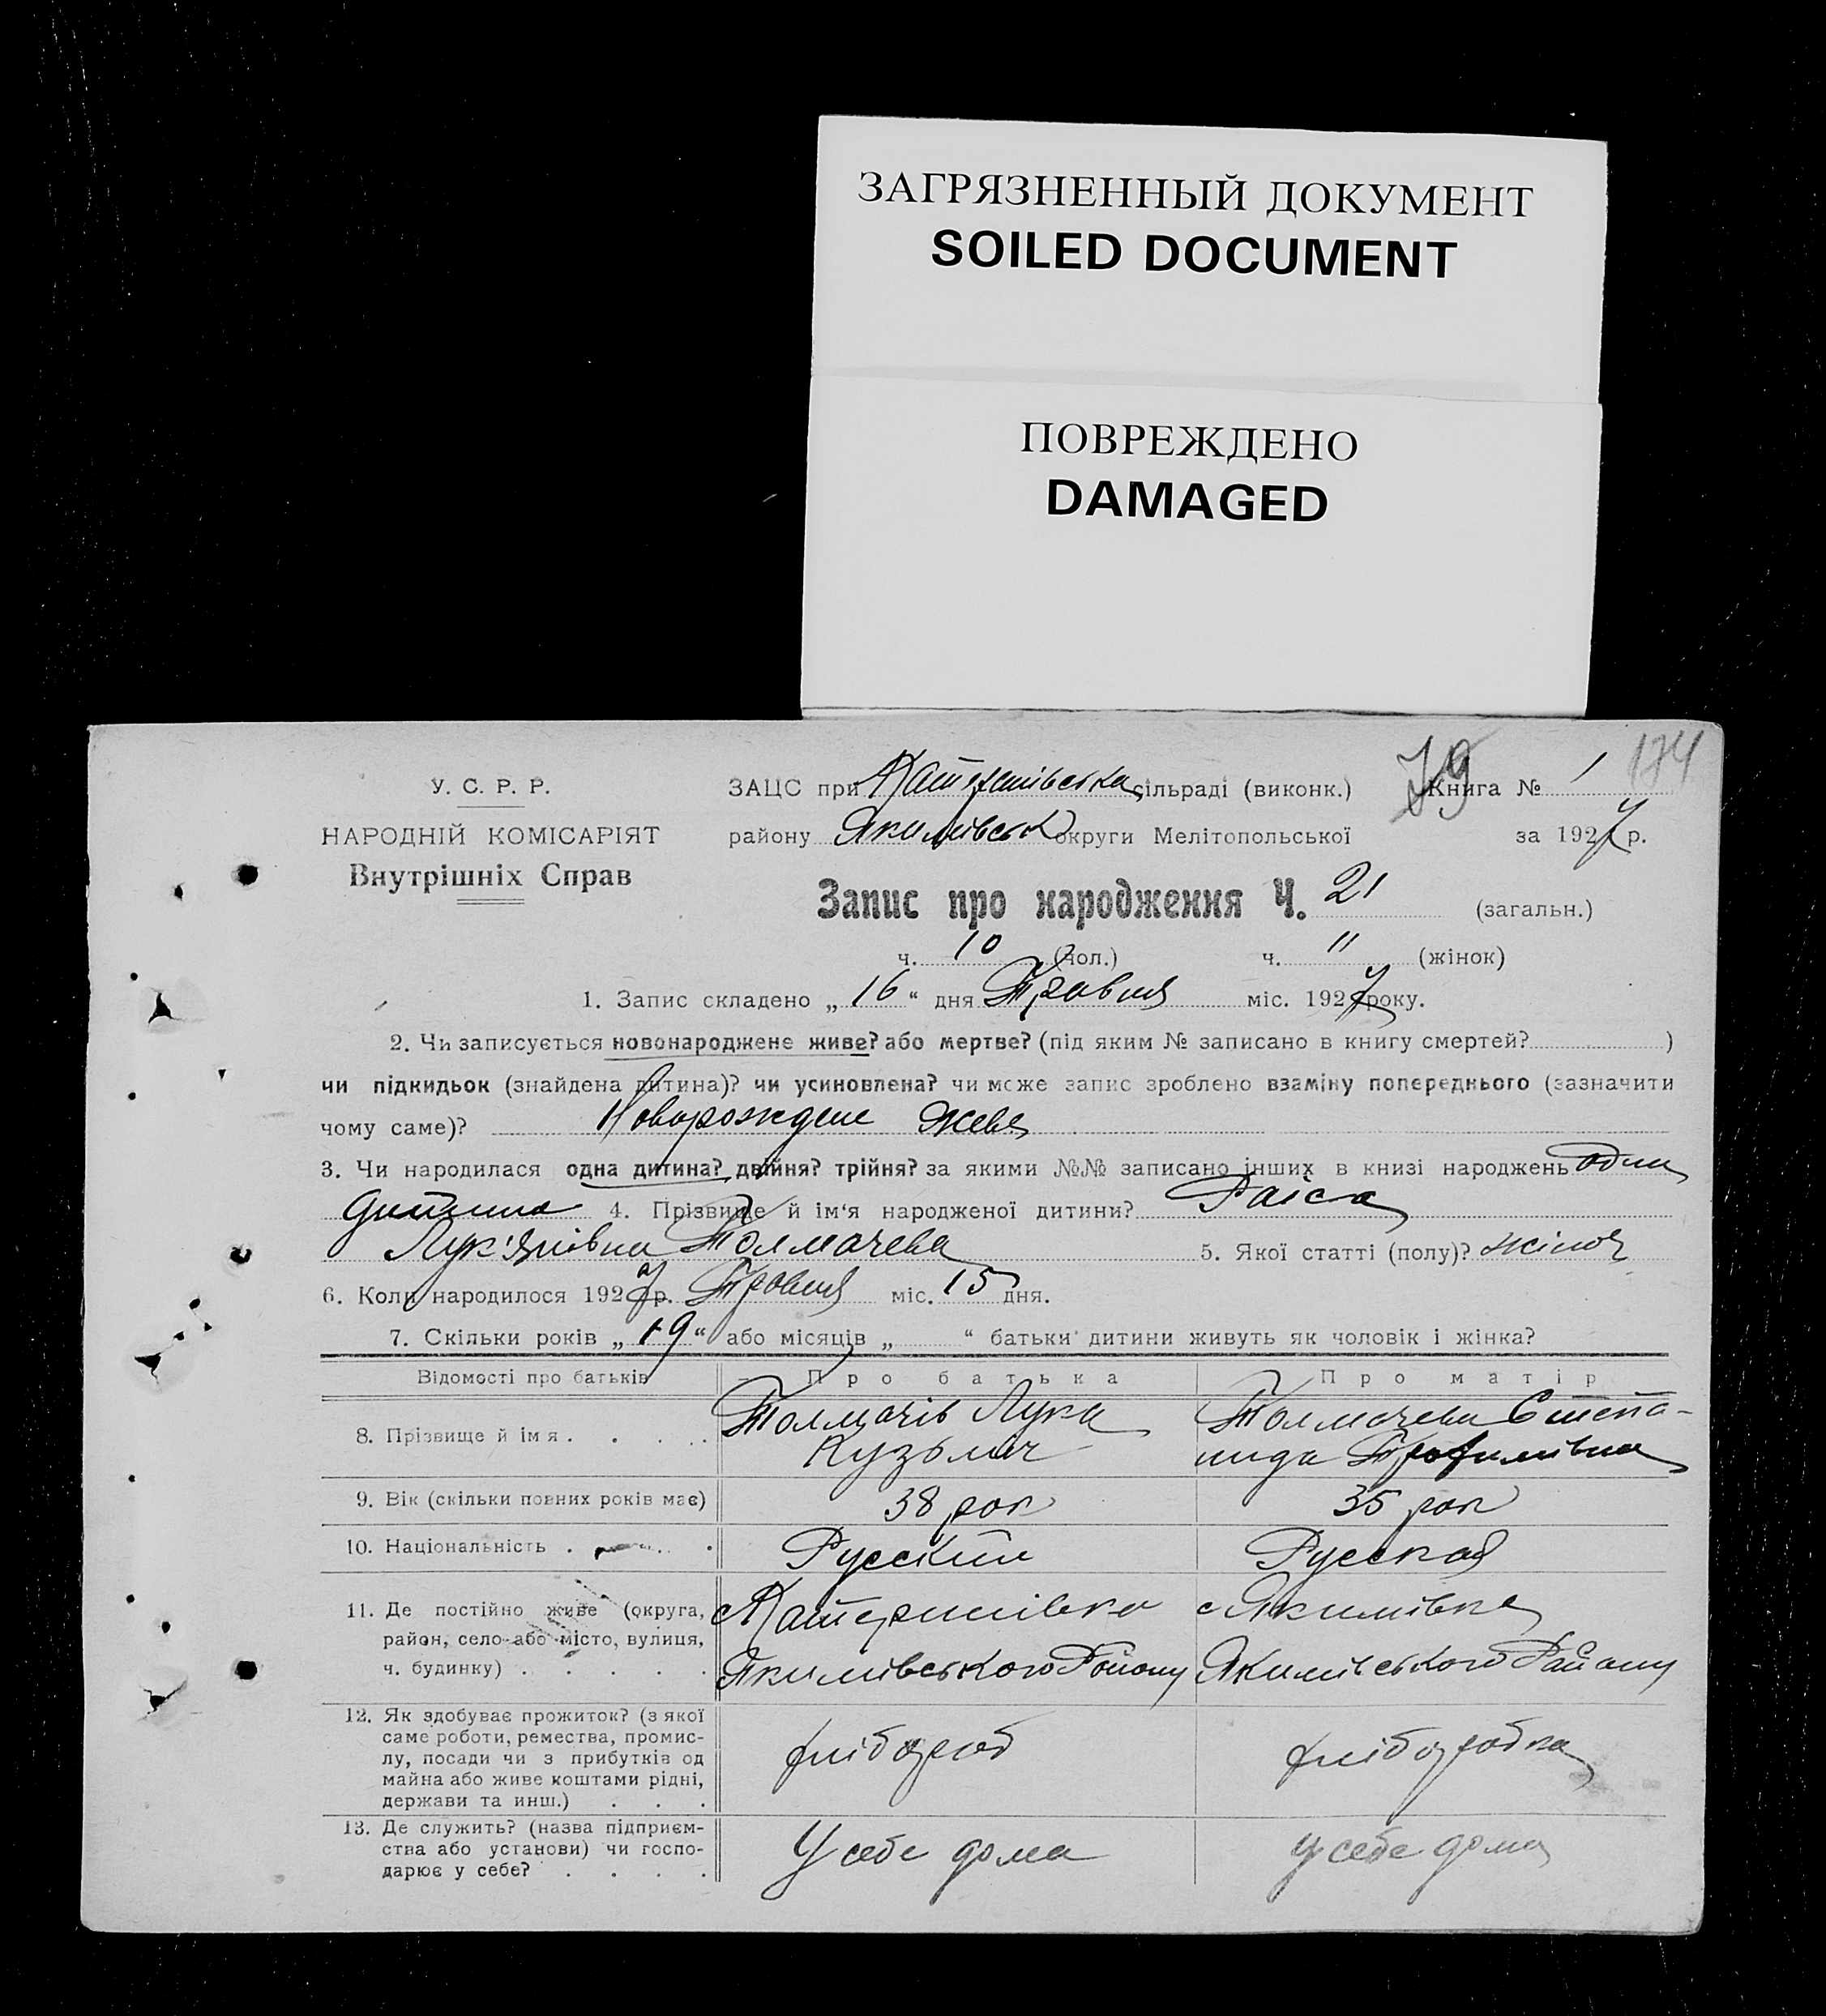 ЗАГРЯЗНЕННЫЙ ДОКУМЕНТ
SOILED DOCUMENT
ПОВРЕЖДЕНО
DAMAGED
79 174
У. С. Р. Р.
НАРОДНІЙ КОМІСАРІЯТ
Внутрішніх Справ
ЗАЦС при Катеринівська сільраді (виконк.) Книга № 1
району Якимівськ округи Мелітопольської за 1927 р.
Запис про народження Ч. 21 (загальн.)
ч. 10 (чол.) ч. 11 (жінок)
1. Запис складено „ 16 “ дня Травня міс. 1927 року.
2. Чи записується новонароджене живе? або мертве? (під яким № записано в книгу смертей? )
чи підкидьок (знайдена дитина)? чи усиновлена? чи може запис зроблено взаміну попереднього (зазначити
чому саме)? Новорождене живе
3. Чи народилася одна дитина? двійня? трійня? за якими №№ записано інших в книзі народжень одна
дитина 4. Прізвище й ім‘я народженої дитини? Раіса
Лук'янівна Толмачева 5. Якої статті (полу)? жіноч
6. Коли народилося 1927 р. Травня міс. 15 дня.
7. Скільки років „ 19 “ або місяців „ “ батьки дитини живуть як чоловік і жінка?
Відомості про батьків Про батька Про матір
8. Прізвище й імя . . . . Толмачів Лука Толмачева Степа-
Кузьмич нида Трофимівна
9. Вік (скільки повних років має) 38 рок 35 рок
10. Національність . . Русский Русская
11. Де постійно живе (округа,
район, село або місто, вулиця,
ч. будинку) . . . . .
с Катеринівка с Якимівка
Якимівського Району Якимівського Району
12. Як здобуває прожиток? (з якої
саме роботи, ремества, промис-
лу, посади чи з прибутків од
майна або живе коштами рідні,
держави та инш.) . . .
хлібороб хліборобка
13. Де служить? (назва підприєм-
ства або установи) чи госпо-
дарює у себе? . . . .
У себе дома У себе дома